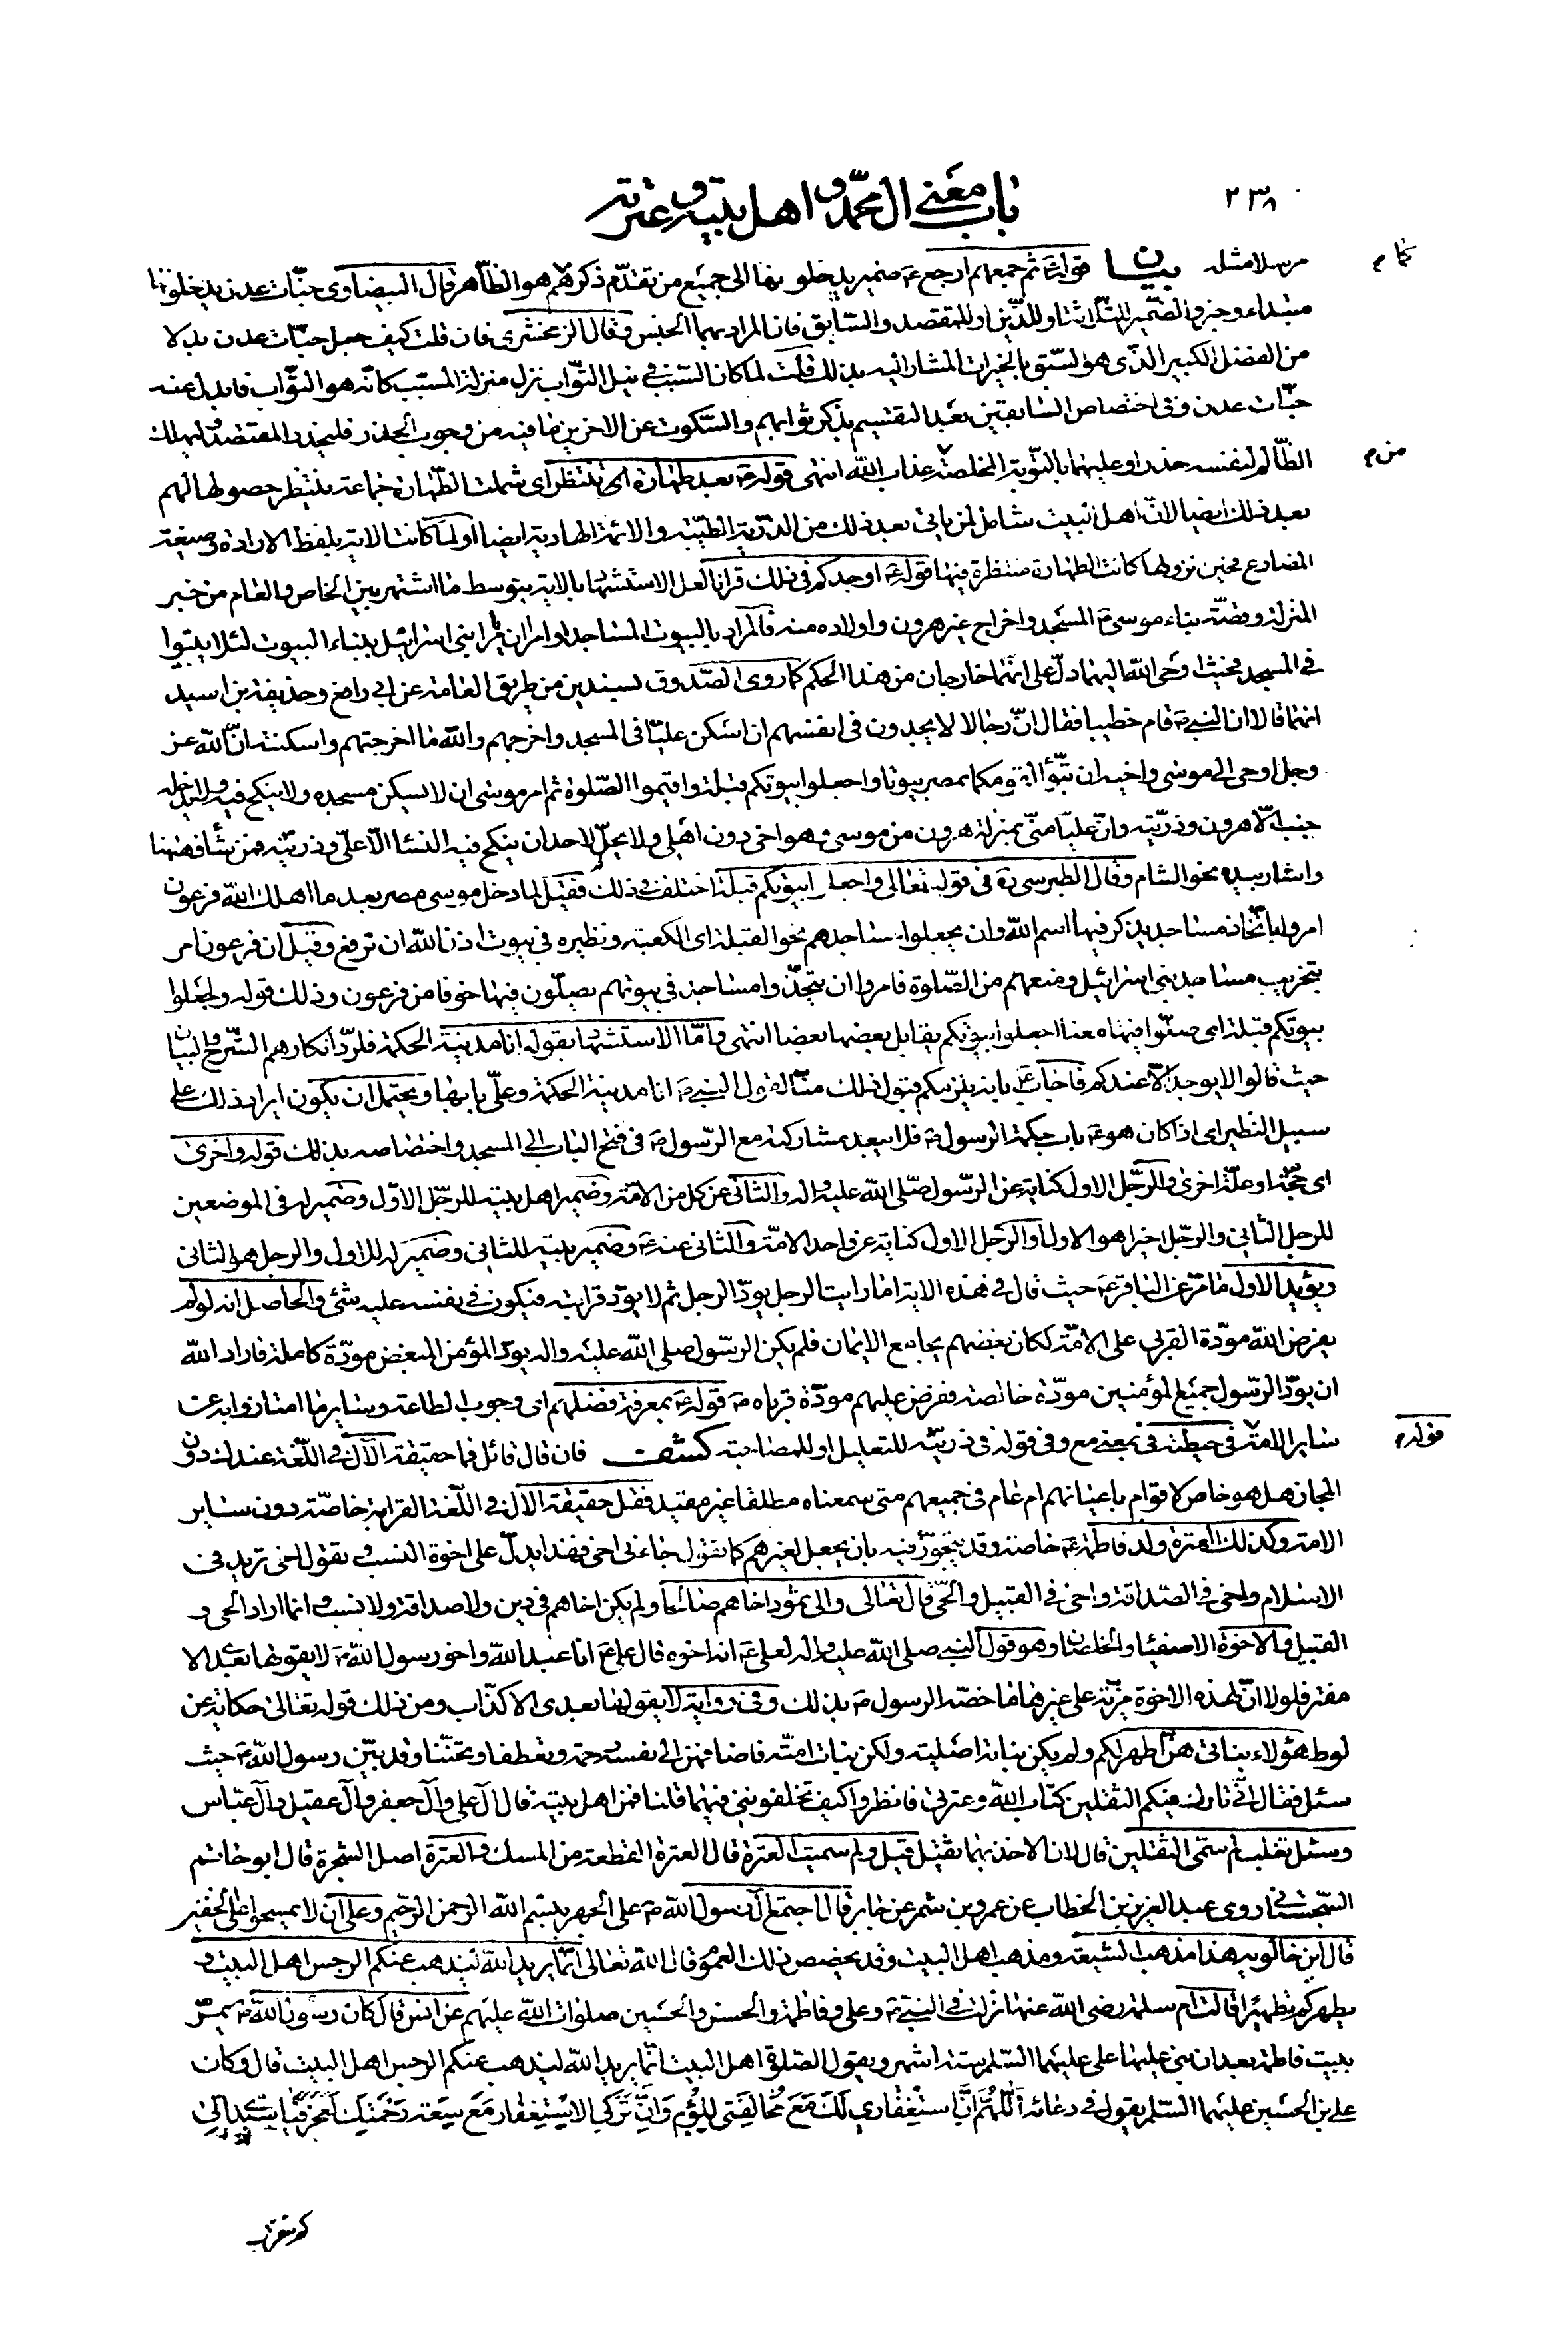 ٢٣٨
باب معنى ال محمّد و اهل بيته و عترته
مرسلا مثله بيان قوله ع ثم جمعهم ارجع ع ضمير يدخلونها الى جميع من تقدّم ذكرهم و هو الظّاهر قال البيضاوى جنّات عدن يدخلونها
كما م
مبتداء و خبر و الضّمير للثّلاثة او للّذين او للمقتصد و السّابق فان المراد بهما الجنس و قال الزمخشرى فان قلت كيف جعل جنّات عدن بدلا
من الفضل الكبير الذّى هو السّبق بالخيرات المشار اليه بذلك قلت لما كان السّبب فى نيل الثّواب نزل منزلة المسبّب كانّه هو الثّواب فابدل عنه
جنّات عدن و فى اختصاص السّابقين بعد التقسيم بذكر ثوابهم و السّكوت عن الاخرين ما فيه من وجوب الحذر فليحذر المقتصد و ليهلك
الظّالم لنفسه حذرا و عليهما بالتّوبة المخلصة عذاب اللّه انتهى قوله ع بعد طهارة اى تنتظر اى شملت الطّهارة جماعة ينتظر حصولها لهم
من م
بعد ذلك ايضا لانّ اهل البيت شامل لمن ياتى بعد ذلك من الذرّية الطّيّبة و الائمّة الهادية ايضا او لما كانت الاية بلفظ الارادة و صيغة
المضارع فحين نزولها كانت الطهارة منتظرة فيها قوله ع اوجدكم فى ذلك قرانا لعل الاستشهاد بالاية بتوسط ما اشتهر بين الخاص و العام من خبر
المنزلة و قصّة بناء موسى ع المسجد و اخراج غير هرون و اولاده منه فالمراد بالبيوت المساجد او امر ان يامرا بنى اسرائيل ببناء البيوت لئلا يبيتوا
فى المسجد فحيث اوحى اللّه اليهما دلّ على انّهما خارجان من هذا الحكم كما روى الصّدوق بسندين من طريق العامة عن ابى رافع و حذيفة بن اسيد
انهما قالا ان النبى ص قام خطيبا فقال انّ رجالا لا يجدون فى انفسهم ان اسكن عليّا فى المسجد و اخرجهم و اللّه ما اخرجتهم و اسكنته انّ اللّه عز
و جل اوحى الى موسى و اخيه ان تبوّا لقومكما بمصر بيوتا و اجعلوا بيوتكم قبلة و اقيموا الصّلوة ثم امر موسى ان لا يسكن مسجده و لا ينكح فيه و لا يدخله
جنب الّا هرون و ذرّيّته و انّ عليّا منّى بمنزلة هرون من موسى و هو اخى دون اهلى و لا يحلّ لاحد ان ينكح فيه النساء الّا علىّ و ذريّته فمن شاء فههنا
و اشار بيده نحو الشام و قال الطبرسى ره فى قوله تعالى و اجعلوا بيوتكم قبلة اختلف فى ذلك فقيل لما دخل موسى مصر بعد ما اهلك اللّه فرعون
امروا باتّخاذ مساجد يذكر فيها اسم اللّه و ان يجعلوا مساجدهم نحو القبلة اى الكعبة و نظيره فى بيوت اذن اللّه ان ترفع و قيل ان فرعون امر
بتخريب مساجد بنى اسرائيل و منعهم من الصّلوة فامروا ان يتّخذوا مساجد فى بيوتهم يصلّون فيها خوفا من فرعون و ذلك قوله و اجعلوا
بيوتكم قبلة اى صلّوا فيها و قيل معناه اجعلوا بيوتكم يقابل بعضها بعضا انتهى و امّا الاستشهاد بقوله انا مدينة الحكمة فلردّ انكارهم الشّرح و البيان
حيث قالوا لا يوجد الّا عندكم فاجاب ع بانه يلزمكم قبول ذلك منّا لقول النبى ص انا مدينة الحكمة و علىّ بابها و يحتمل ان يكون ايراد ذلك على
سبيل النظير اى اذا كان هو ع باب حكمة الرسول ص فلا يبعد مشاركته مع الرّسول ص فى فتح الباب الى المسجد و اختصاصه بذلك قوله و اخرى
اى حجّة او علّة اخرى و الرّجل الاول كناية عن الرّسول صلّى اللّه عليه و اله و الثانى عن كل من الامّة و ضمير اهل بيته للرّجل الاوّل و ضمير له فى الموضعين
للرجل الثانى و الرّجل اخيرا هو الاول او الرّجل الاول كناية عن واحد الامّة و الثانى عنه ع و ضمير بيته للثانى و ضمير له للاول و الرجل هو الثانى
و يؤيد الاول ما مرّ عن الباقر ع حيث قال فى هذه الاية اما رايت الرجل يودّ الرجل ثم لا يودّ قرابته فيكون فى نفسه عليه شئ و الحاصل انه لو لم
يفرض اللّه مودّة القربى على الامّة لكان بغضهم يجامع الايمان فلم يكن الرسول صلى اللّه عليه و اله يودّ المؤمن المبغض مودّة كاملة فاراد اللّه
ان يودّ الرسول جميع المؤمنين مودّة خالصة ففرض عليهم مودّة قرباه ص قوله ع بمعرفة فضلهم اى وجوب الطاعة و ساير ما امتازوا به عن
ساير الامّة فى حيطته فى بمعنى مع و فى قوله فى ذريّته للتعليل او للمصاحبة كشف فان قال قائل فما حقيقة الآل فى اللّغة عندك دون
قوله م
المجاز هل هو خاص لاقوام باعيانهم ام عام فى جميعهم متى سمعناه مطلقا غير مقيد فقل حقيقة الآل فى اللّغة القرابة خاصّة دون ساير
الامة و كذلك العترة ولد فاطمة ع خاصة و قد يتجوّز فيه بان يجعل لغيرهم كما تقول جاءنى اخى فهذا يدلّ على اخوة النسب و تقول اخى تريد فى
الاسلام و اخى فى الصّداقة و اخى فى القبيل و الحّى قال تعالى و الى ثمود اخاهم صالحا و لم يكن اخاهم فى دين و لا صداقة و لا نسب و انما اراد الحى و
القبيل و الاخوة الاصفياء و الخلصان و هو قول النبى صلى اللّه عليه و اله لعلى ع انه اخوه قال على ع انا عبد اللّه و اخو رسول اللّه ص لا يقولها بعدى الا
مفتر فلولا انّ لهذه الاخوة مزيّة على غيرها ما خصّه الرسول ص بذلك و فى رواية لا يقولها بعدى الا كذّاب و من ذلك قوله تعالى حكاية عن
لوط هؤلاء بناتى هنّ اطهر لكم و لم يكن بناته لصلبه و لكن بنات امّته فاضافهنّ الى نفسه رحمة و تعطفا و تحنّنا و قد بيّن رسول اللّه ص حيث
سئل فقال انّى تارك فيكم الثقلين كتاب اللّه و عترتى فانظروا كيف تخلفونى فيهما قلنا فمن اهل بيته قال آل على و آل جعفر و آل عقيل و آل عبّاس
و سئل ثعلب لم سمّى الثقلين قال لان الاخذ بهما ثقيل قيل و لم سميت العترة قال العترة القطعة من المسك و العترة اصل الشجرة قال ابو حاتم
السّجستانى روى عبد العزيز بن الخطاب عن عمرو بن شمر عن جابر قال اجتمع آل رسول اللّه ص على الجهر ببسم اللّه الرحمن الرّحيم و على ان لا يمسحوا على الخفين
قال ابن خالويه هذا مذهب الشيعة و مذهب اهل البيت و قد يخصص ذلك العموم قال اللّه تعالى انّما يريد اللّه ليذهب عنكم الرجس اهل البيت و
يطهركم تطهيرا قالت ام سلمة رضى اللّه عنها نزلت فى النبى ص و على و فاطمة و الحسن و الحسين صلوات اللّه عليهم عن انس قال كان رسول اللّه ص يمرّ
ببيت فاطمة بعد ان بنى عليها على عليهما السّلم ستة اشهر و يقول الصّلوة اهل البيت انّما يريد اللّه ليذهب عنكم الرجس اهل البيت قال و كان
على بن الحسين عليهما السّلم يقول فى دعائه اَللّهُمَّ اِنَّ اسْتِغْفارى لَكَ مَعَ مُخالَفَتى لَلُؤْمٌ وَ اِنَّ تَرْكِى الاِسْتِغْفارَ مَعَ سِعَةِ رَحْمَتِكَ لَعَجْزٌ فَيا سَيِّدى اِلى
كم تتقرّب